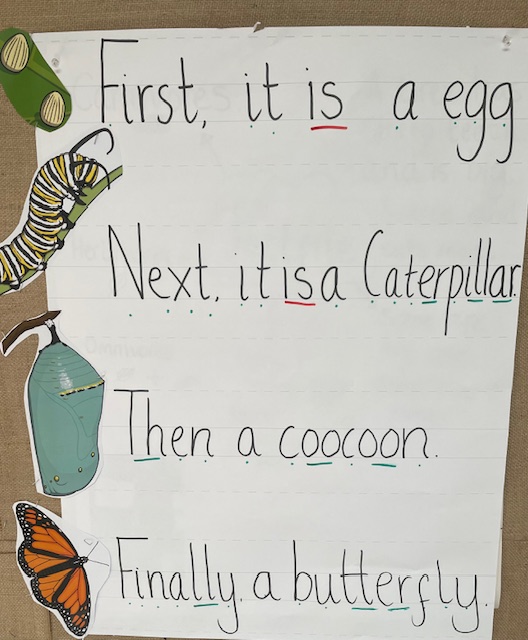 First, it is a egg
Next, it is a Caterpillar.
Then a coocoon.
Finally a butterfly.